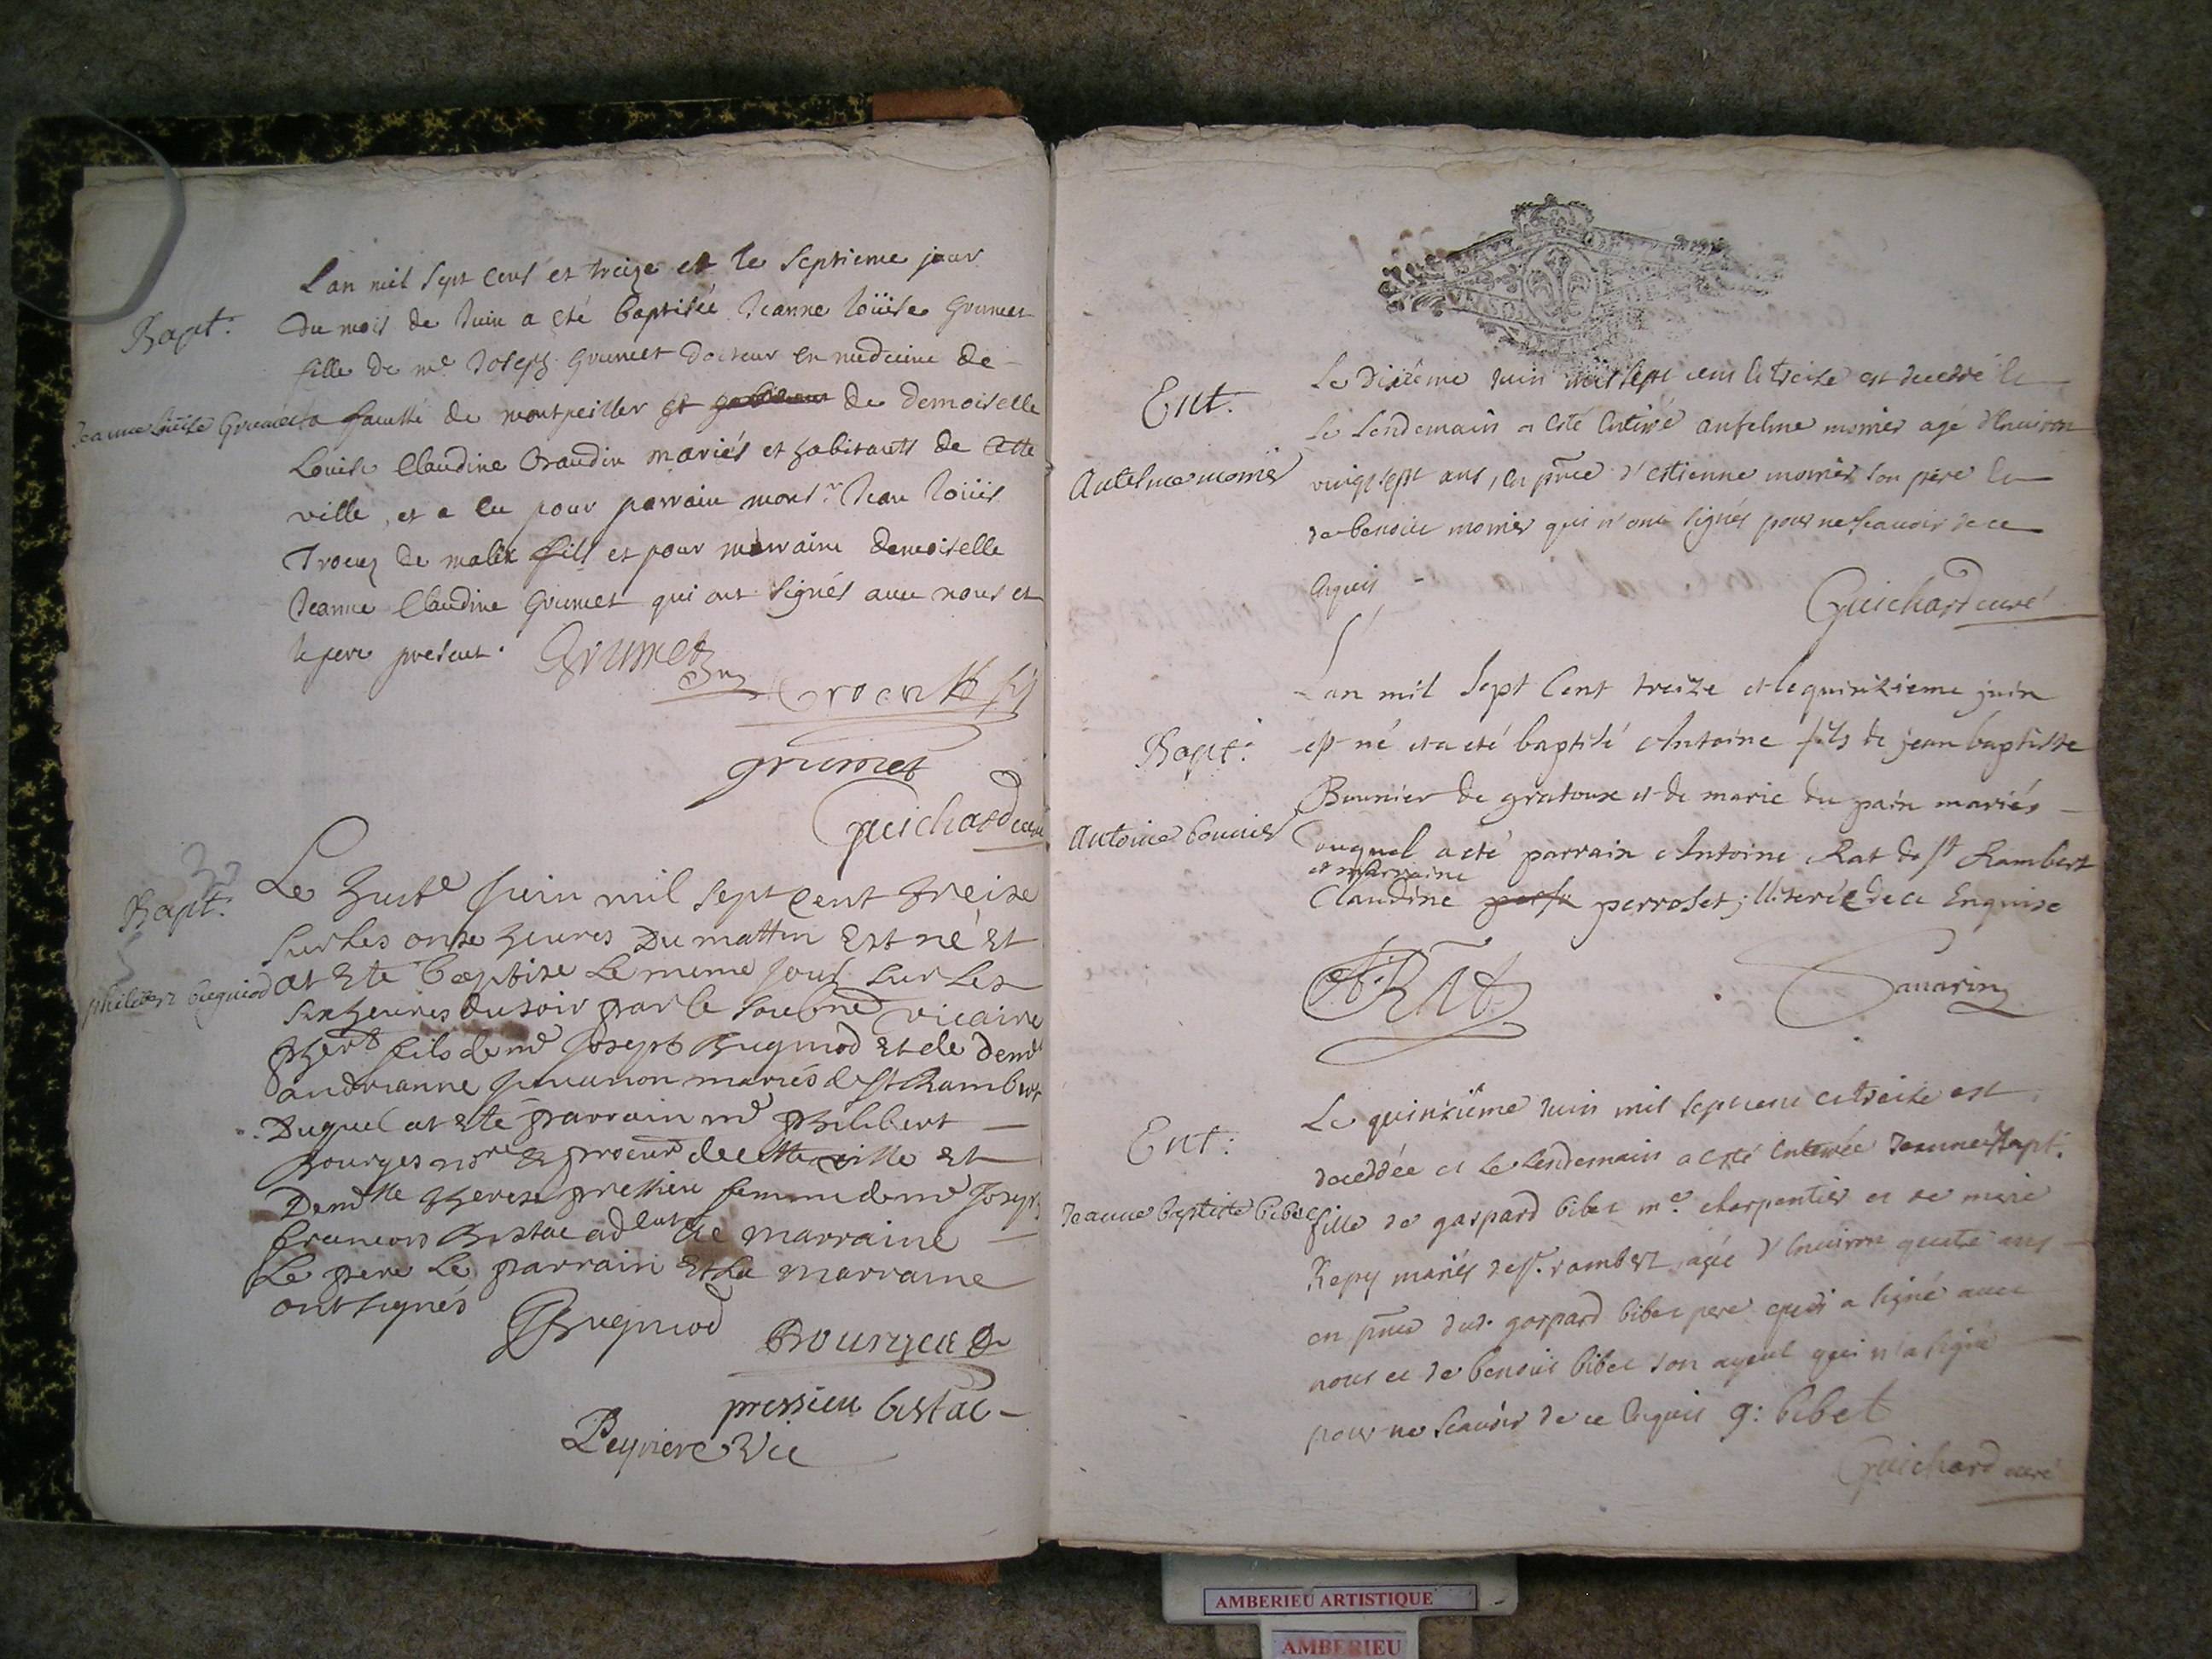 Lan mil sept cens et treize et le septieme jour
Bapt.
du mois de Juin a eté baptisée Jeanne Loüise Grumet
fille de me Joseph Grumet docteur en medecine de
Jeanne Loüise Grumet
la faculté de montpeillier et de demoiselle
Louise Claudine Oraudin mariés et habitants de cette
ville, et a eu pour parrain monsr Jean Loüis
Trocu de malix fils et pour marraine demoiselle
Jeanne Claudine Grumet qui ont signés avec nous et
le pere present. Grumet
Trocu fils
grumet
Guichard curé
Le huite Juin mil sept cent treize
Bapt.
sur les onse heures du mattin est né et
at ete baptise le meme jour sur les
philibert bugniod
six heures du soir par le soubne vicaire
phert fils de me Joseph Bugniod et de demlle
andrianne mariés de st Rambert
Duquel at ete parrain me philibert
Bourges nore et procur de cette ville et
Demlle therese pressieu femme de me Joseph
francois Bestac adcat et marraine
Le pere Le parrain et la marraine
ont signés Bugniod
Bourges
pressieu bestac
Peyriere Vic
Le dixième Juin mil sept cens et treise est decedé et
Ent.
le lendemain a esté enterré antelme monier agé d'environ
Antelme monier
vingt sept ans, en pnce d'estienne monier son père et
de benoite monier qui n'ont signés pour ne scavoir de ce
enquis
Guichard curé
Lan mil sept Cent treize et le quinzieme juin
Bapt.
est né et a eté baptisé Antoine fils de jean baptiste
Bonnier de gratoux et de marie du pain mariés
Antoine bonnier
auquel a eté parrain Antoine Rat de st Rambert
et marraine
Claudine perroset; illiterée de ce Enquise
A. RAt
Savarin
Le quinzième Juin mil sept cens et treise est
Ent.
decedée et le lendemain a esté enterrée Jeanne Bapt.
Jeanne baptiste bibet
fille de gaspard bibet me charpentier et de marie
Repy mariés de st. rambert, agée d'environ quatre ans
en pnce dud. gaspard bibet pere qui a signé avec
nous et de benoit bibet son ayeul qui n'a signé
pour ne scavoir de ce enquis g: bibet
Guichard curé
AMBERIEU ARTISTIQUE
AMBERIEU